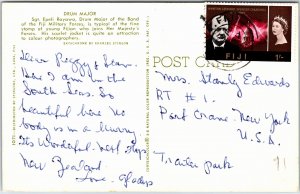 DRUM MAJOR
Sgt. Eroni Bavanoa, Drum Major of the Band
of the Fiji Military Forces, is typical of the fine
young Fijian who joins Her Majesty's
Forces. His scarlet jacket is quite an attraction
to colour photographers.
EKTACHROME BY CHARLES STINSON
POST CARD
FIJI
1/-
Dear Peggy & Stan.
Here I am in the
South Seas. So
beautiful here no
body is in a hurry.
Its Wonderful. Next stop
New Zealand.
Love. Gladys
Mrs. Stanly Edwards
RT # 1.
Port Crane - New York
U.S.A.
Trailer park